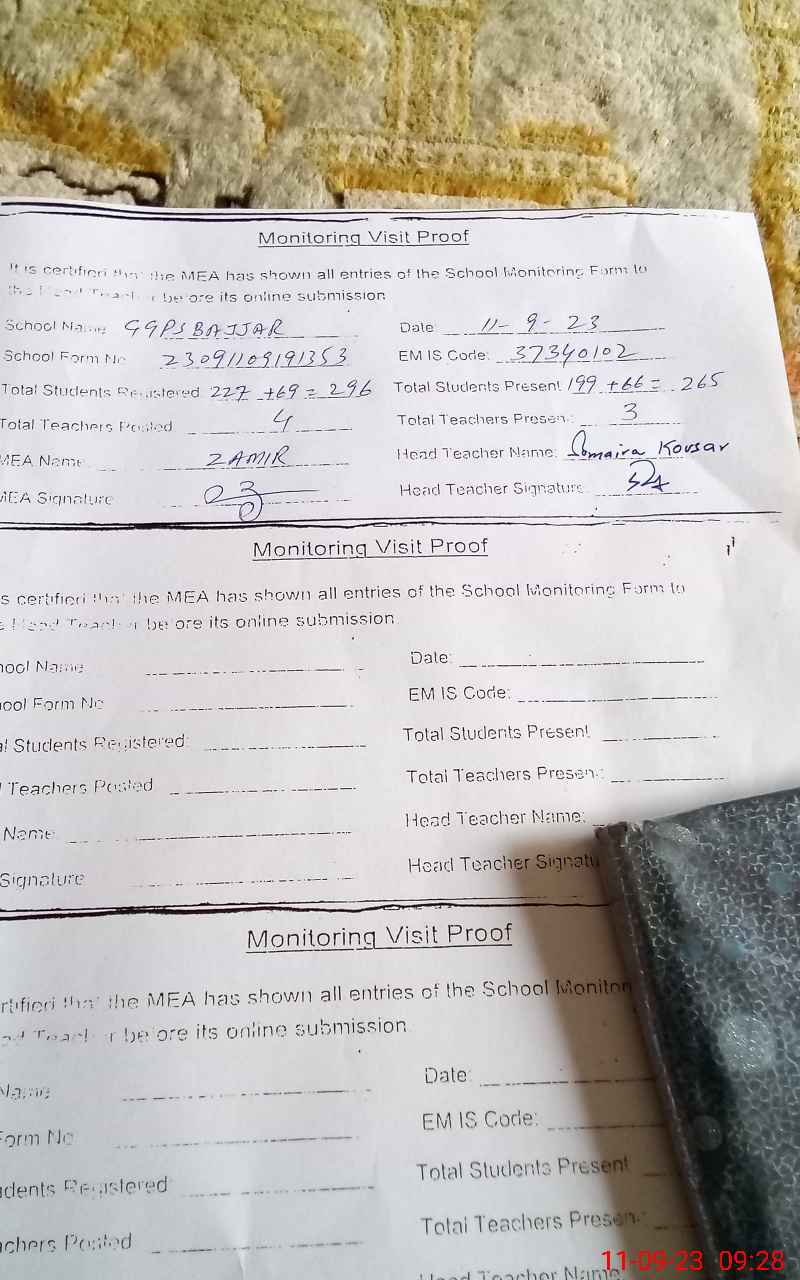 Monitoring Visit Proof
It is certified that the MEA has shown all entries of the School Monitoring Form to
the Head Teacher before its online submission
School Name GGPS BAJJAR Date: 11-9-23
School Form No 23091109191353 EMIS Code: 37340102
Total Students Registered 227 +69 = 296 Total Students Present 199 +66 = 265
Total Teachers Posted 4 Total Teachers Present: 3
MEA Name ZAMIR Head Teacher Name: Somaira Kousar
MEA Signature Head Teacher Signature:
Monitoring Visit Proof
s certified that the MEA has shown all entries of the School Monitoring Form to
e Head Teacher before its online submission
hool Name Date:
ool Form No EMIS Code:
al Students Registered: Total Students Present
l Teachers Posted Total Teachers Present:
Name Head Teacher Name:
Signature Head Teacher Signatu
Monitoring Visit Proof
rtified that the MEA has shown all entries of the School Monitorin
ead Teacher before its online submission
Name Date:
Form No EMIS Code:
udents Registered Total Students Present
achers Posted Total Teachers Present:
Head Teacher Name
11-09-23 09:28